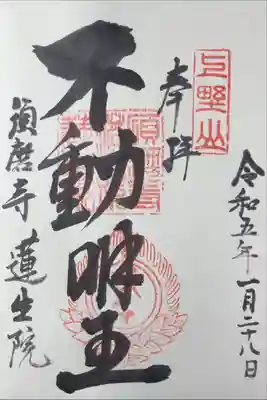 上野山
奉拝
令和五年一月二十八日
不動明王
須磨寺 蓮生院